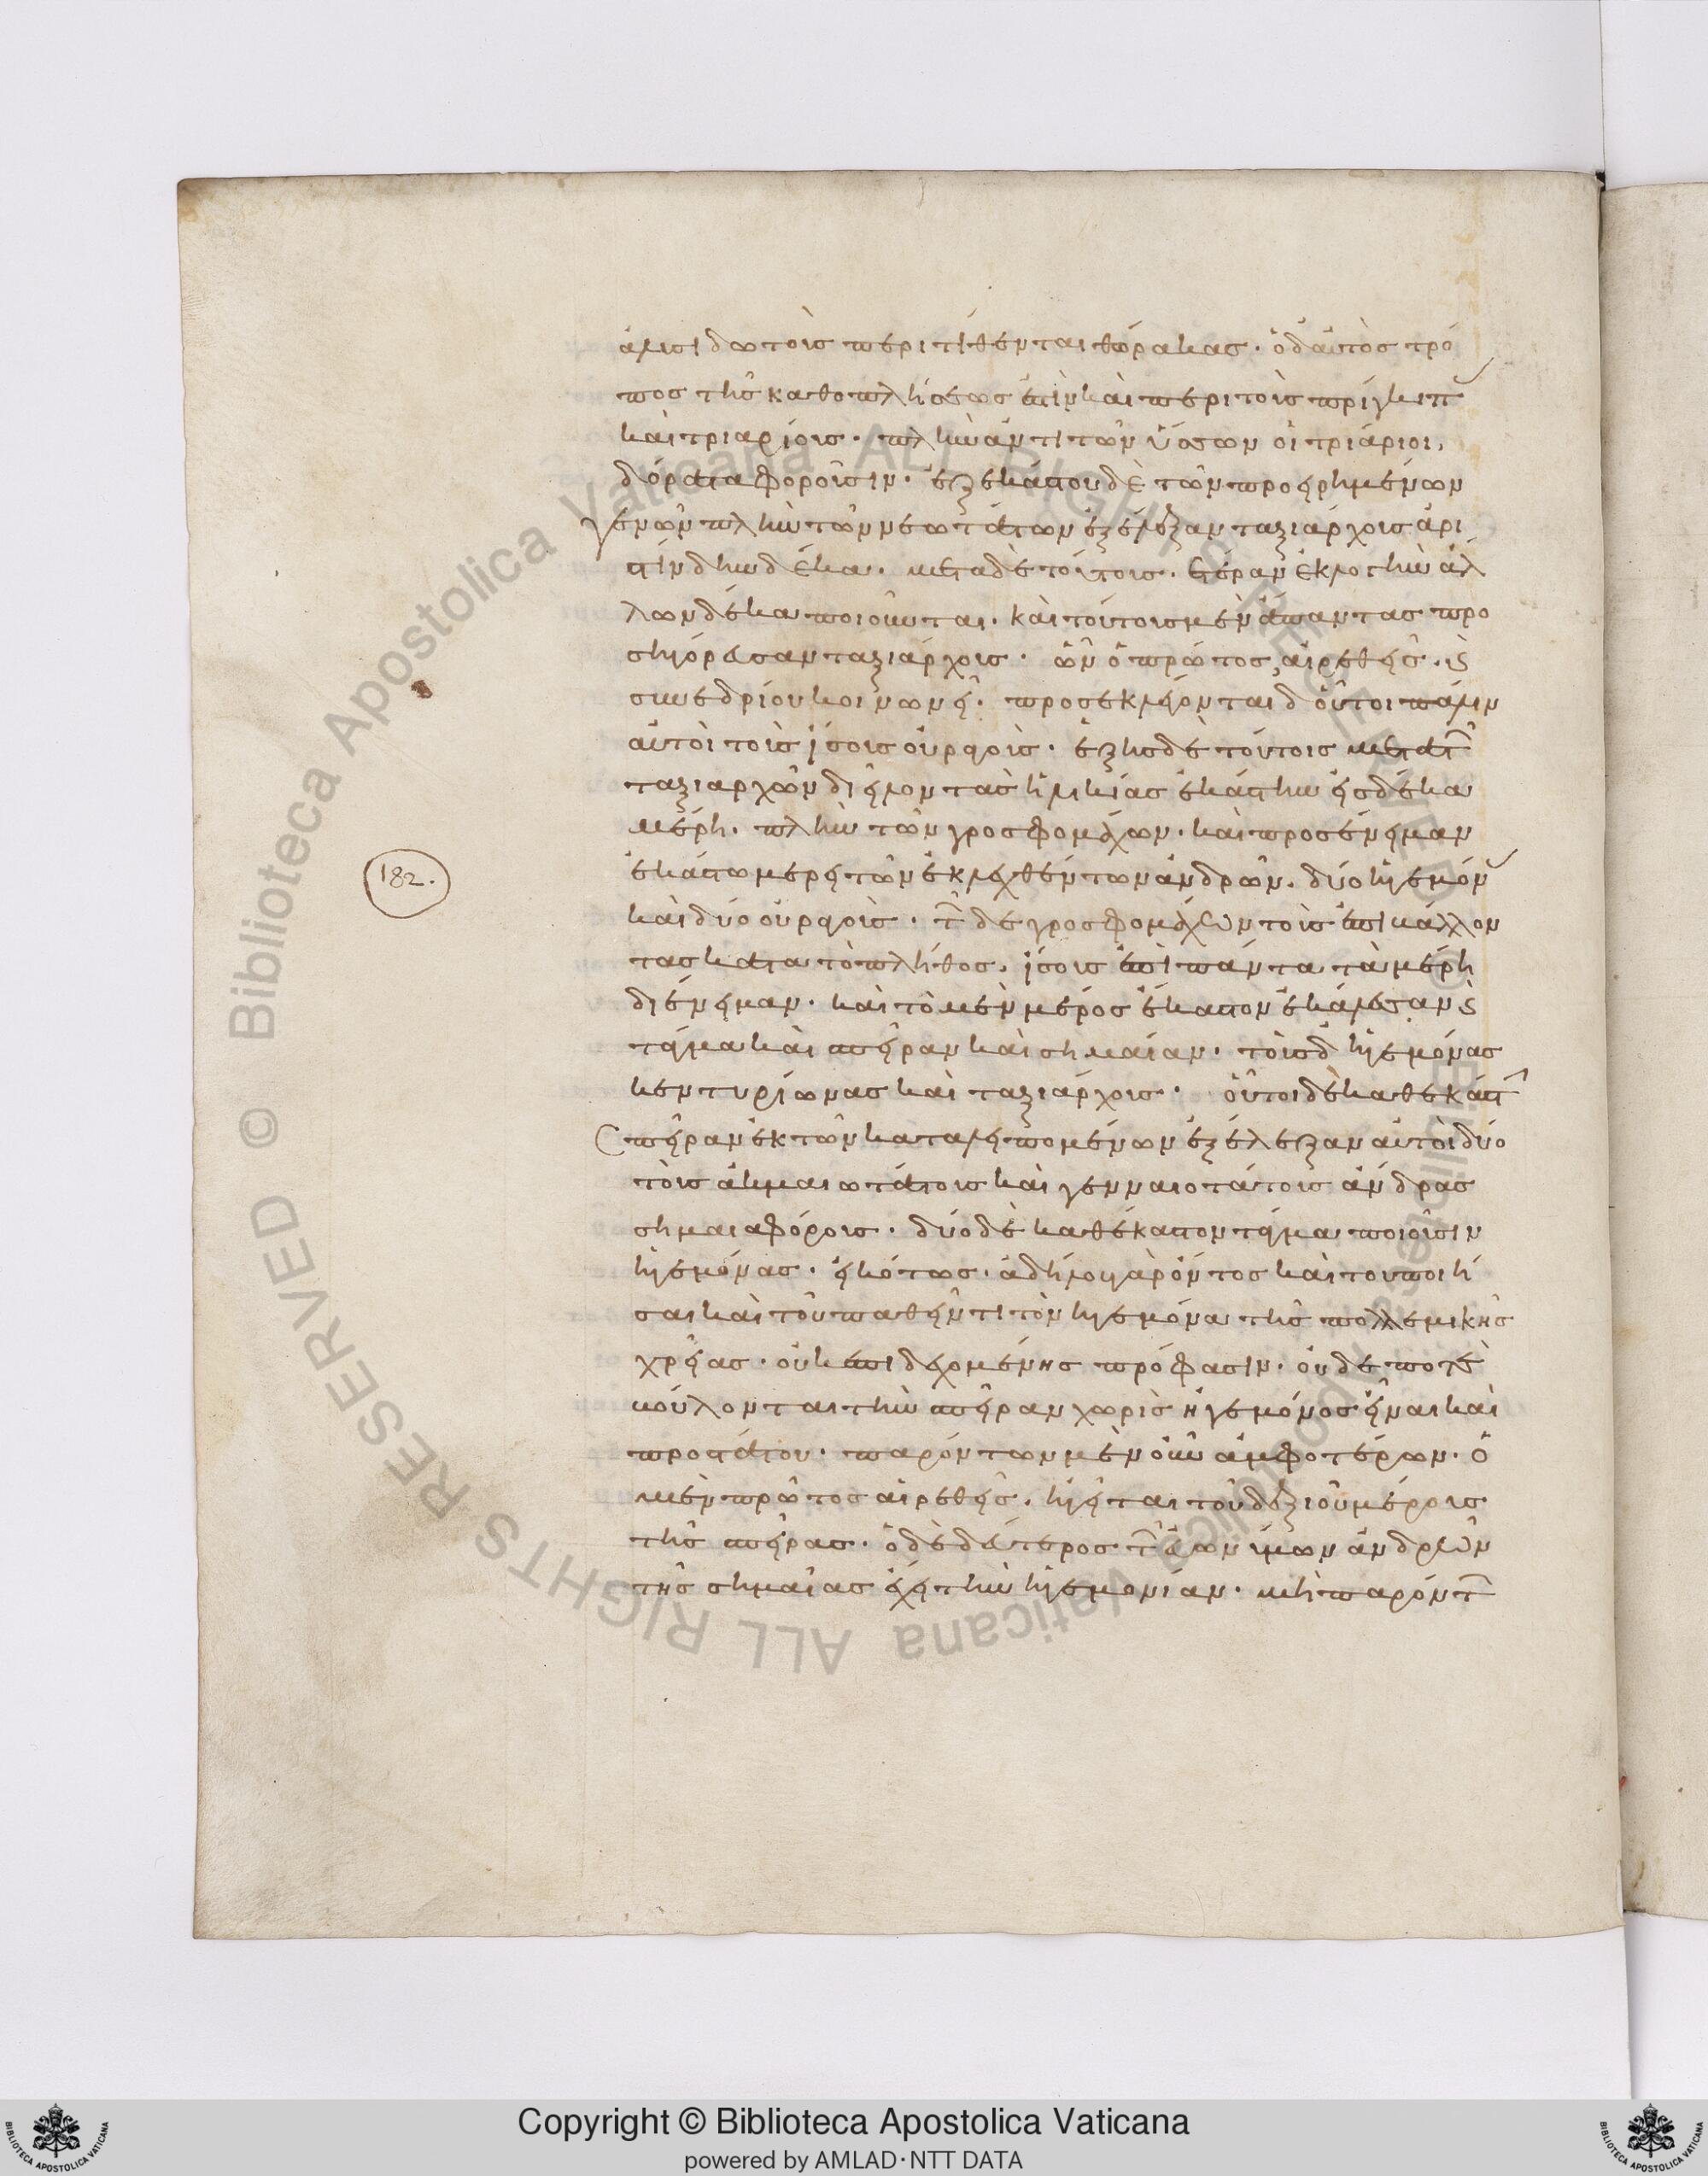 ἁλυσιδωτοὺς περιτίθενται θώρακας· ὁ δ' αὐτὸς τρό
πος τῆς καθοπλήσεως ἐστὶν καὶ περὶ τοὺς πρίγκιπ
καὶ τριαρίους· πλὴν ἀντὶ τῶν ὑσσῶν οἱ τριάριοι,
δόρατα φοροῦσιν· ἐξ ἑκάστου δὲ τῶν προειρημένων
γενῶν πλὴν τῶν νεωτάτων ἐξέλεξαν ταξιάρχους ἀρι
στίνδην δέκα· μετὰ δὲ τούτους· ἑτέραν ἐκλογὴν ἄλ
λων δέκα ποιοῦνται· καὶ τούτους μὲν ἅπαντας προ
σηγόρευσαν ταξιάρχους· ὧν ὁ πρῶτος αἱρεθεὶς· καὶ
συνεδρίου κοινωνεῖ· προσεκλέγονται δ' οὗτοι πάλιν
αὐτοὶ τοὺς ἴσους οὐραγούς· ἑξῆς δὲ τούτοις μετὰ τῶν
ταξιαρχῶν διεῖλον τὰς ἡλικίας ἑκάστην εἰς δέκα
μέρη· πλὴν τῶν γροσφομάχων· καὶ προσένειμαν
ἑκάστω μέρει τῶν ἐκλεχθέντων ἀνδρῶν· δύο ἡγεμόν
καὶ δύο οὐραγούς· τῶν δὲ γροσφομάχων τοὺς ἐπιβάλλον
τας κατὰ τὸ πλῆθος, ἴσους ἐπὶ πάντα τὰ μέρη
διένειμαν· καὶ τὸ μὲν μέρος ἕκαστον ἐκάλεσαν καὶ
τάγμα καὶ σπεῖραν καὶ σημαίαν· τοὺς δ' ἡγεμόνας
κεντυρίωνας καὶ ταξιάρχους· οὗτοι δὲ καθ' ἑκάστ
σπεῖραν ἐκ τῶν καταλειπομένων ἐξέλεξαν αὐτοὶ δύο
τοὺς ἀκμαιωτάτους καὶ γενναιοτάτους ἄνδρας
σημαιαφόρους· δύο δὲ καθ' ἕκαστον τάγμα ποιοῦσιν
ἡγεμόνας· εἰκότως· ἀδήλου γὰρ ὄντος καὶ τοῦ ποιῆ
σαι καὶ τοῦ παθεῖν τι τὸν ἡγεμόνα τῆς πολεμικῆς
χρείας· οὐκ ἐπιδεχομένης πρόφασιν· οὐδέποτε
βούλονται τὴν σπεῖραν χωρὶς ἡγεμόνος εἶναι καὶ
προστάτου· παρόντων μὲν οὖν ἀμφοτέρων· ὁ
μὲν πρῶτος αἱρεθεὶς· ἡγεῖται τοῦ δεξιοῦ μέρους
τῆς σπείρας· ὁ δὲ δεύτερος τῶν εὐωνύμων ἀνδρῶν
τῆς σημαίας ἔχει τὴν ἡγεμονίαν· μὴ παρόντων
182.
Copyright © Biblioteca Apostolica Vaticana
powered by AMLAD·NTT DATA